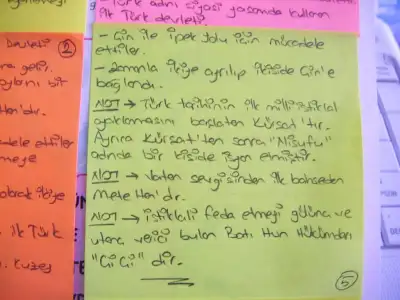 - Türk adını siyasi yaşamda kullanan
ilk Türk devleti.
- Çin ile ipek yolu için mücadele
ettiler.
- Zamanla ikiye ayrılıp ikiside Çin'e
bağlandı.
NOT → Türk tarihinin ilk milli istiklal
ayaklanmasını başlatan Kürşat'tır.
Ayrıca Kürşat'ten sonra "Nişufu"
adında bir kişide isyan etmiştir.
NOT → Vatan sevgisinden ilk bahseden
Mete Han'dır.
NOT → istiklali feda etmeyi gülünç ve
utanç verici bulan Batı Hun Hükümdarı
"Çi Çi" dir.
5
Devleti 2
ra gelir.
bir
Han'dır.
ettiler
meye
olarak ikiye
ilk Türk
. Kuzey